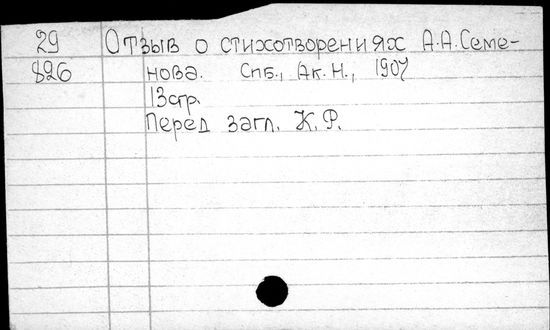 29 Отзыв о стихотворениях А.А.Семе-
826 нова. Спб., Ак. Н., 1907
13стр.
Перед загл. К.Р.